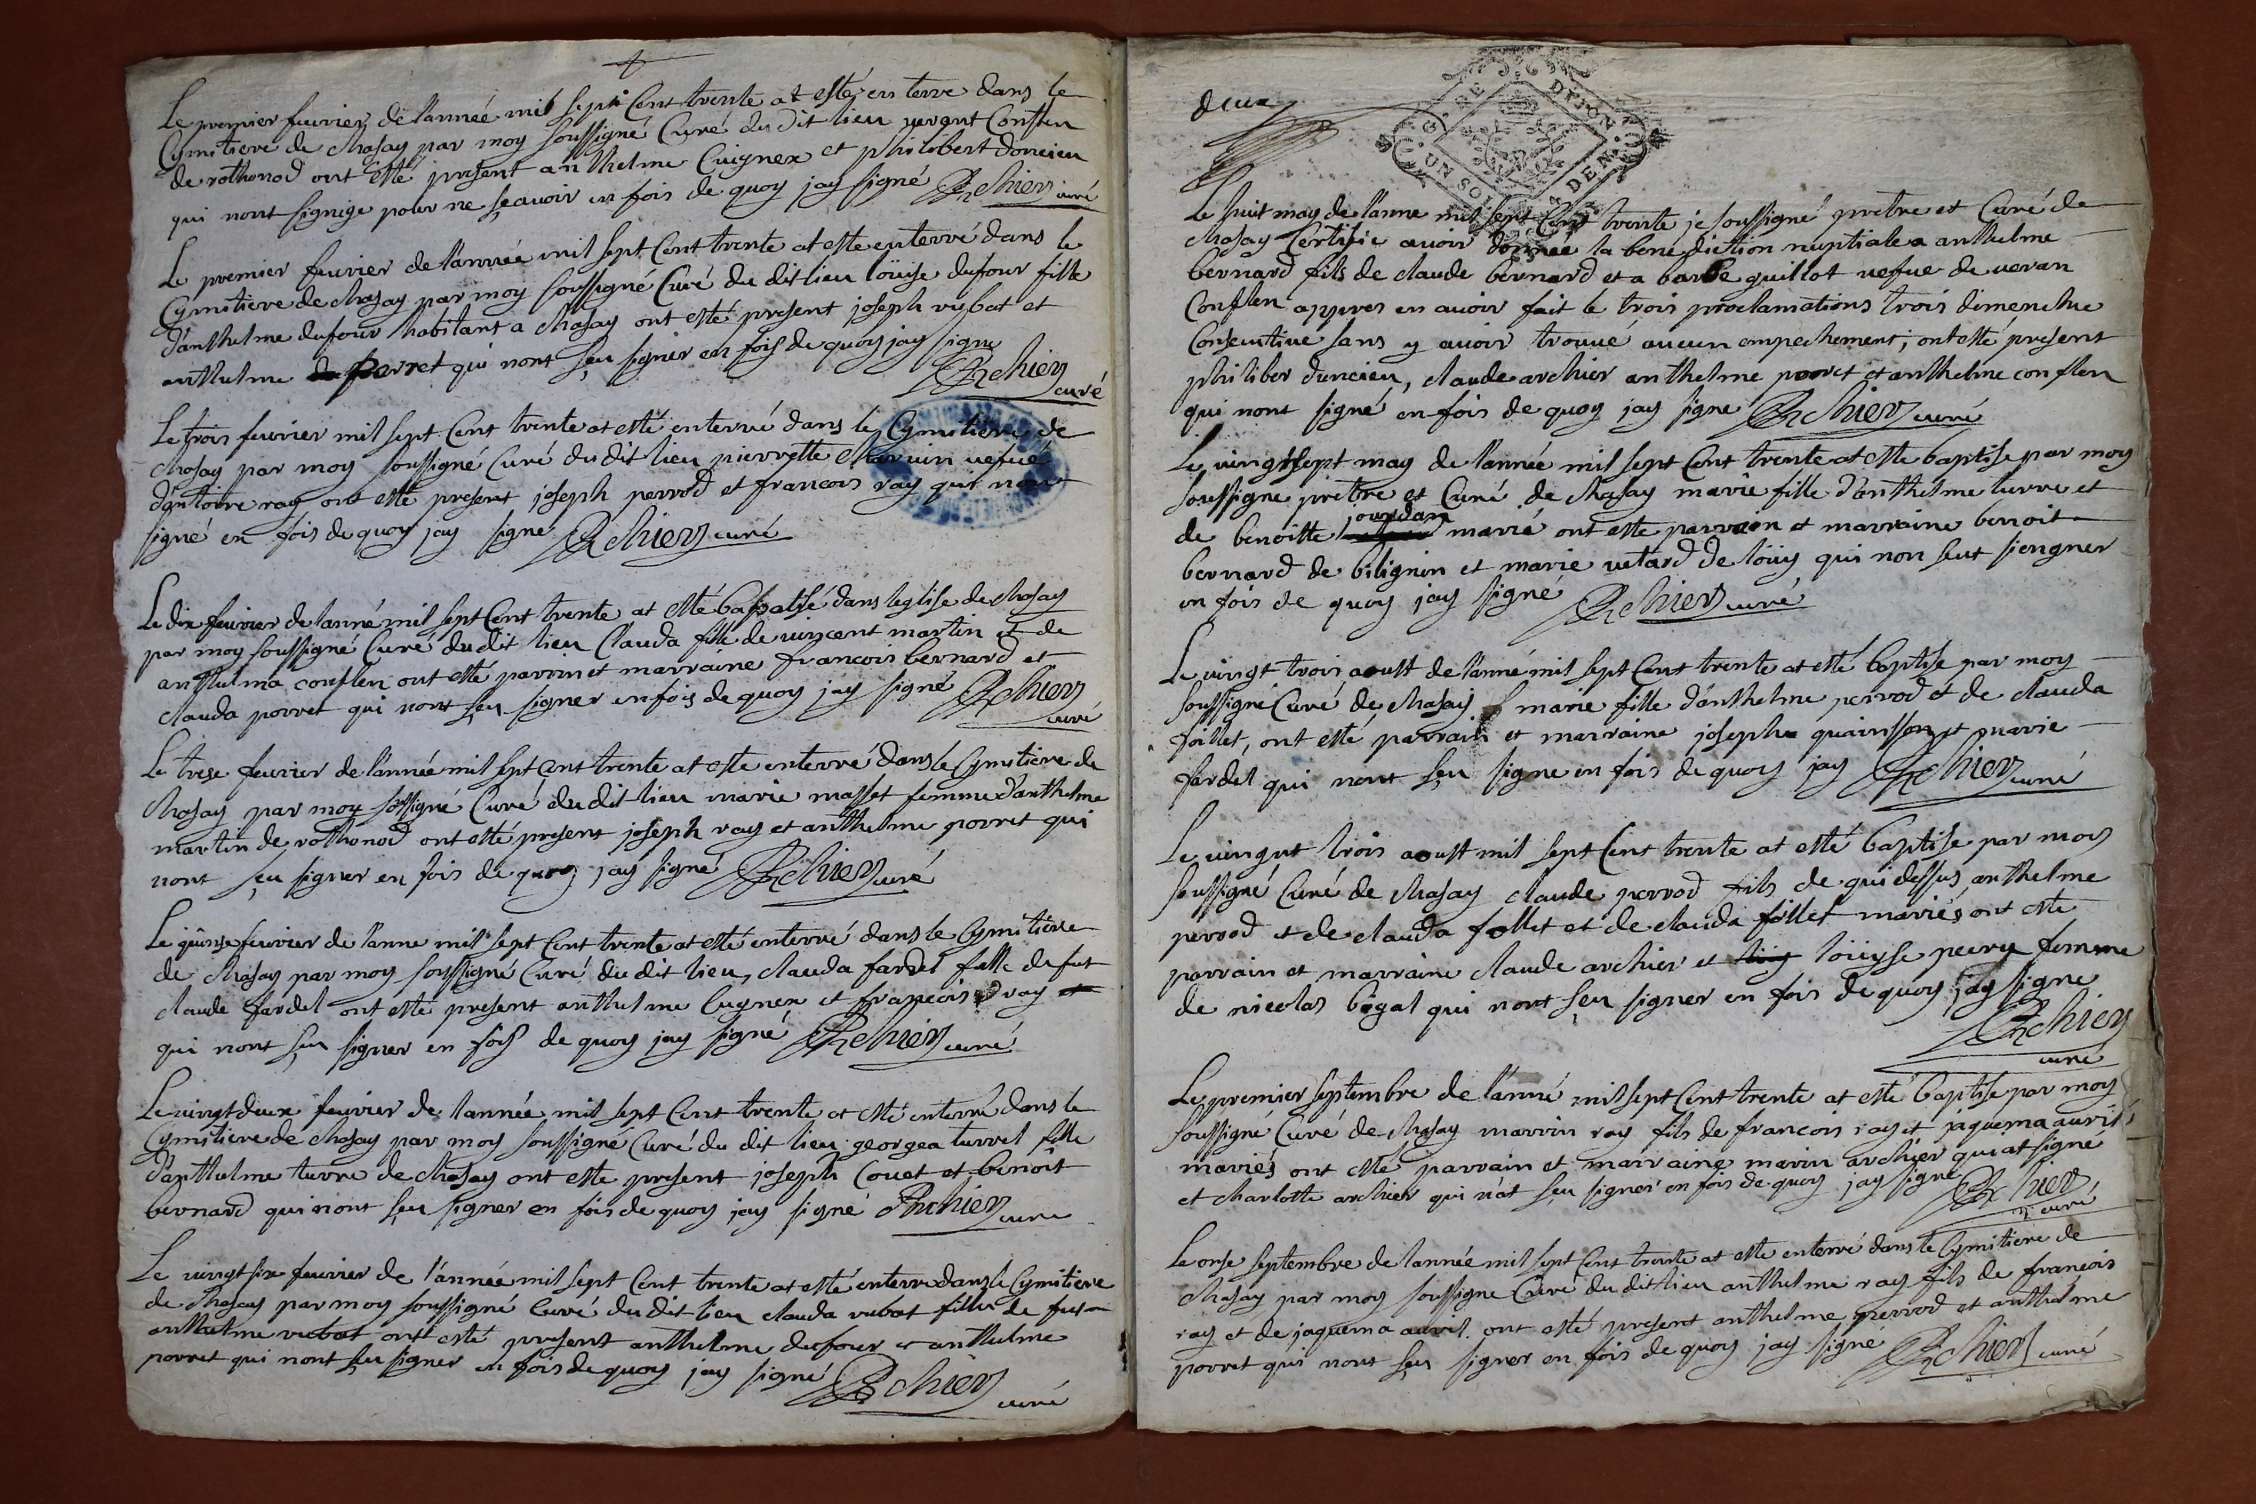 Le premier feuvrier de l'année mil sept Cent trente at esté en terre dans le
Cymitiere de chasay par moy soussigné Curé du dit lieu verant Conflen
de rothonod ont esté present anthelme Cuignex et philibert doncieu
qui nont signige pour ne sçauoir en fois de quoy jay signé Archier curé
Le premier feuvrier de l'année mil sept Cent trente at esté enterré dans le
Cymitiere de chasay par moy soussigné Curé du dit lieu loüise dufour fille
d'anthelme dufour habitant a chasay ont esté present joseph rubat et
anthelme porret qui nont sçeu signer en fois de quoy jay signe
Archier
curé
Le trois feuvrier mil sept Cent trente at esté enterré dans le Cymitiere de
chasay par moy soussigné Curé du dit lieu pierrette charvin vefue
d'antoine ray ont esté present joseph perrod et francois ray qui nont
signé en fois de quoy jay signe Archier curé
Le dix feuvrier de lanné mil sept Cent trente at esté baptisé dans leglise de chasay
par moy soussigné Curé du dit lieu Clauda fille de vincent martin et de
anthelma conflen ont esté parrin et marraine francois bernard et
clauda porret qui nont sçeu signer en fois de quoy jay signé Archier
curé
Le trese feuvrier de l'année mil sept Cent trente at esté enterré dans le Cymitiere de
chasay par moy soussigné Curé du dit lieu marie masset femme d'anthelme
martin de rothonod ont esté present joseph ray et anthelme porret qui
nont sçeu signer en fois de quoy jay signé Archier curé
Le quinse feuvrier de l'anne mil sept Cent trente at esté enterré dans le Cymitiere
de chasay par moy soussigné Curé du dit lieu, clauda fardel fille de fut
claude fardel ont esté present anthelme Cugnex et francois ray et
qui nont sçeu signer en fois de quoy jay signé Archier curé
Le vingt deux feuvrier de l'année mil sept Cent trente at esté enterré dans le
Cymitiere de chasay par moy soussigné Curé du dit lieu georgea turrel fille
d'anthelme turre de chasay ont esté present joseph Couet et benoit
bernard qui nont sçeu signer en fois de quoy jay signé Archier curé
Le vingt six feuvrier de l'année mil sept Cent trente at esté enterre dans le Cymitiere
de chasay par moy soussigné Curé du dit lieu clauda rubat fille de fut
anthelme rubat ont esté present anthelme dufour et anthelme
porret qui nont sçeu signer en fois de quoy jay signé Archier
curé
deux
G. RE DE DIJON
UN SOL DEN.
Le huit may de l'anne mil sept Cent trente je soussigné pretre et Curé de
chasay Certifie avoir donnée la benediction nuptiale a anthelme
bernard fils de claude bernard et a barbe guillot vefue de veran
Conflen appres en avoir fait le trois proclamations trois dimenche
Consecutive sans y avoir trouvé aucun empechement; ont esté present
philiber duncieu, claude archier anthelme porret et anthelme conflen
qui nont signé en fois de quoy jay signe Archier curé
Le vingt sept may de l'année mil sept Cent trente at esté baptise par moy
soussigne pretre et Curé de chasay marie fille d'anthelme turre et
de benoitte jourdan marié ont esté parrain et marraine benoit
bernard de bilignin et marie vetard de loüy qui non seut siengner
en fois de quoy jay signé Archier curé
Le vingt trois aoust de l'anné mil sept Cent trente at esté baptise par moy
soussigné Curé de chasay marie fille d'anthelme perrod et de clauda
follet, ont esté parrain et marraine joseph quainsson et marie
fardel qui nont sçeu signe en fois de quoy jay Archier curé
Le vingnt trois aoust mil sept Cent trente at esté baptise par moy
soussigné Curé de chasay claude perrod fils de qui dessus anthelme
perrod et de clauda follet et de clauda follet mariés, ont esté
parrain et marraine claude archier et loüyse pecry femme
de nicolas bogat qui nont sçeu signer en fois de quoy jay signe
Archier
curé
Le premier septembre de l'anné mil sept Cent trente at esté baptise par moy
soussigné Curé de chasay marrin ray fils de francois ray et jaquema avril
mariés ont esté parrain et marraine marin archier qui at signé
et charlotte archier qui n'at sçeu signer en fois de quoy jay signé Archier
curé
Le onse septembre de l'année mil sept Cent trente at esté enterré dans le Cymitiere de
chasay par moy soussigne Curé du dit lieu anthelme ray fils de francois
ray et de jaquema avril. ont esté present anthelme perrod et anthelme
porret qui nont sçeu signer en fois de quoy jay signé Archier curé